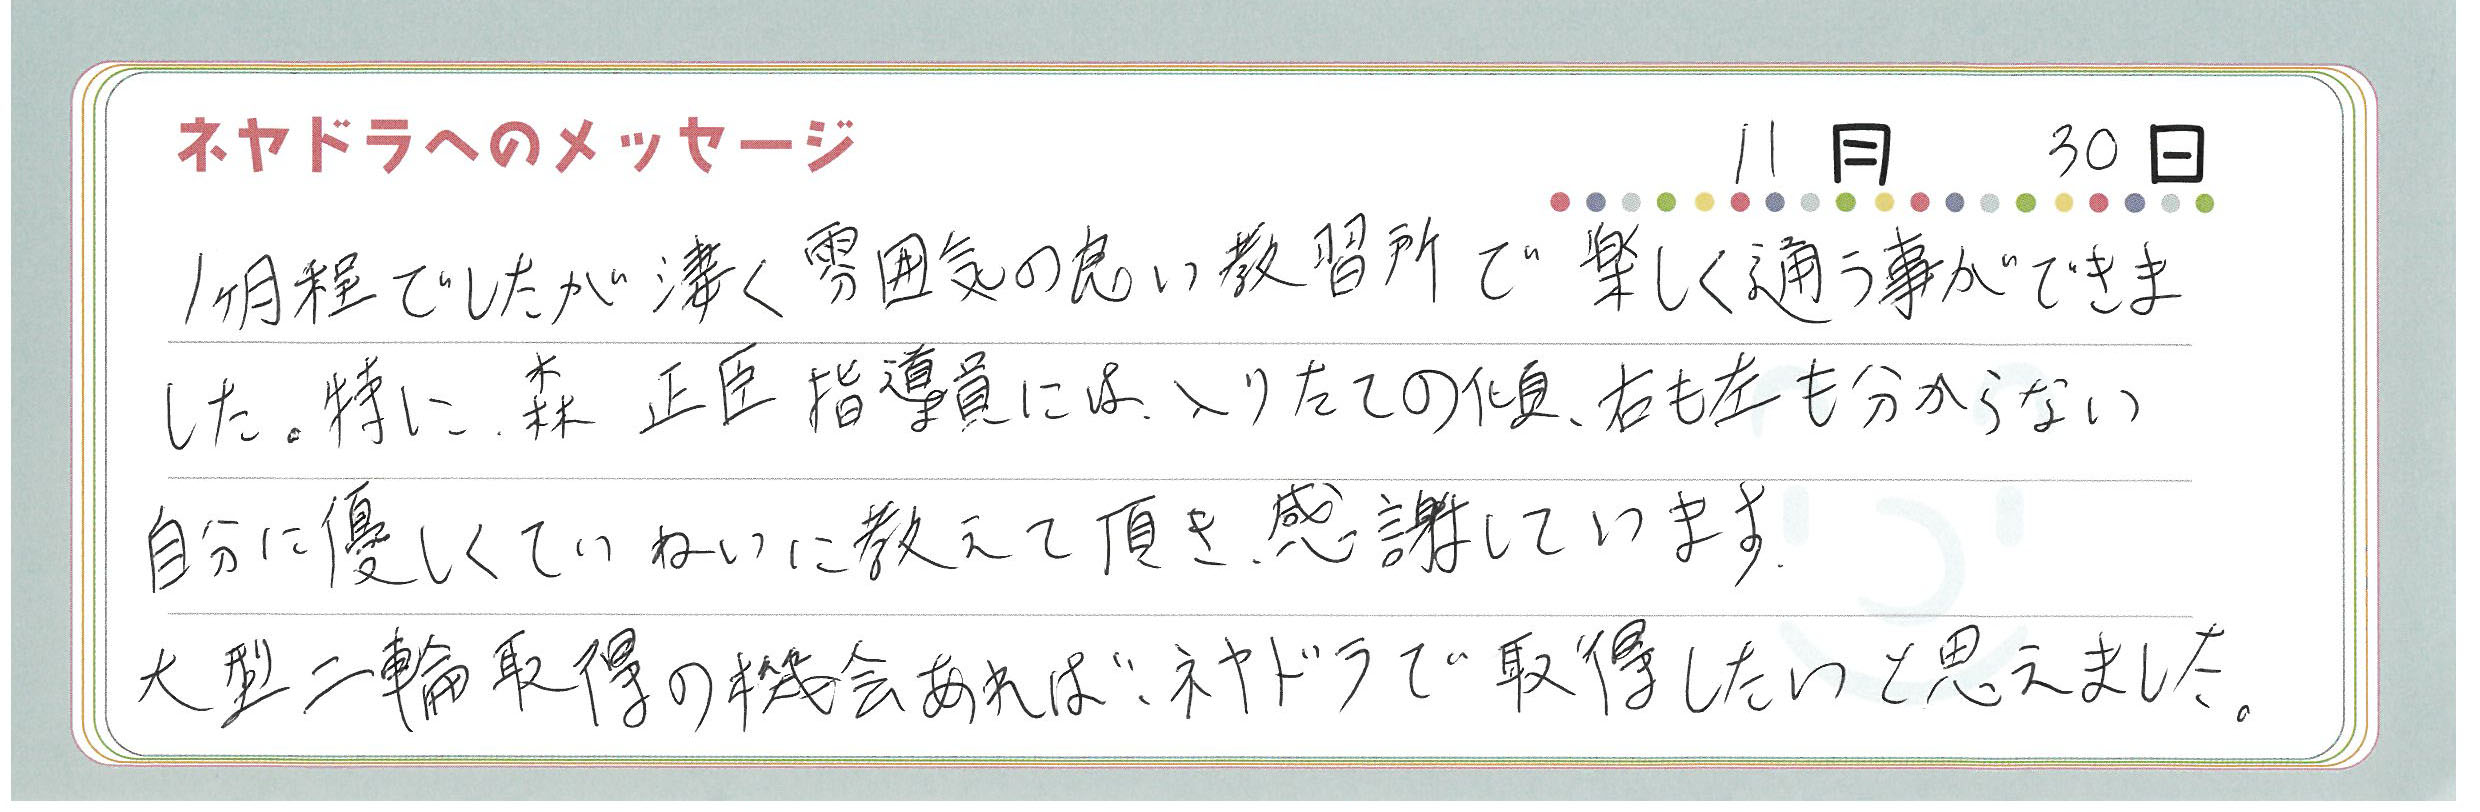 ネヤドラへのメッセージ 11月 30日
1ヶ月程でしたが凄く雰囲気の良い教習所で楽しく通う事ができま
した。特に、森 正臣 指導員には、入りたての傾、右も左も分からない
自分に優しくていねいに教えて頂き、感謝しています.
大型二輪取得の機会あれば、ネヤドラで取得したいと思えました。